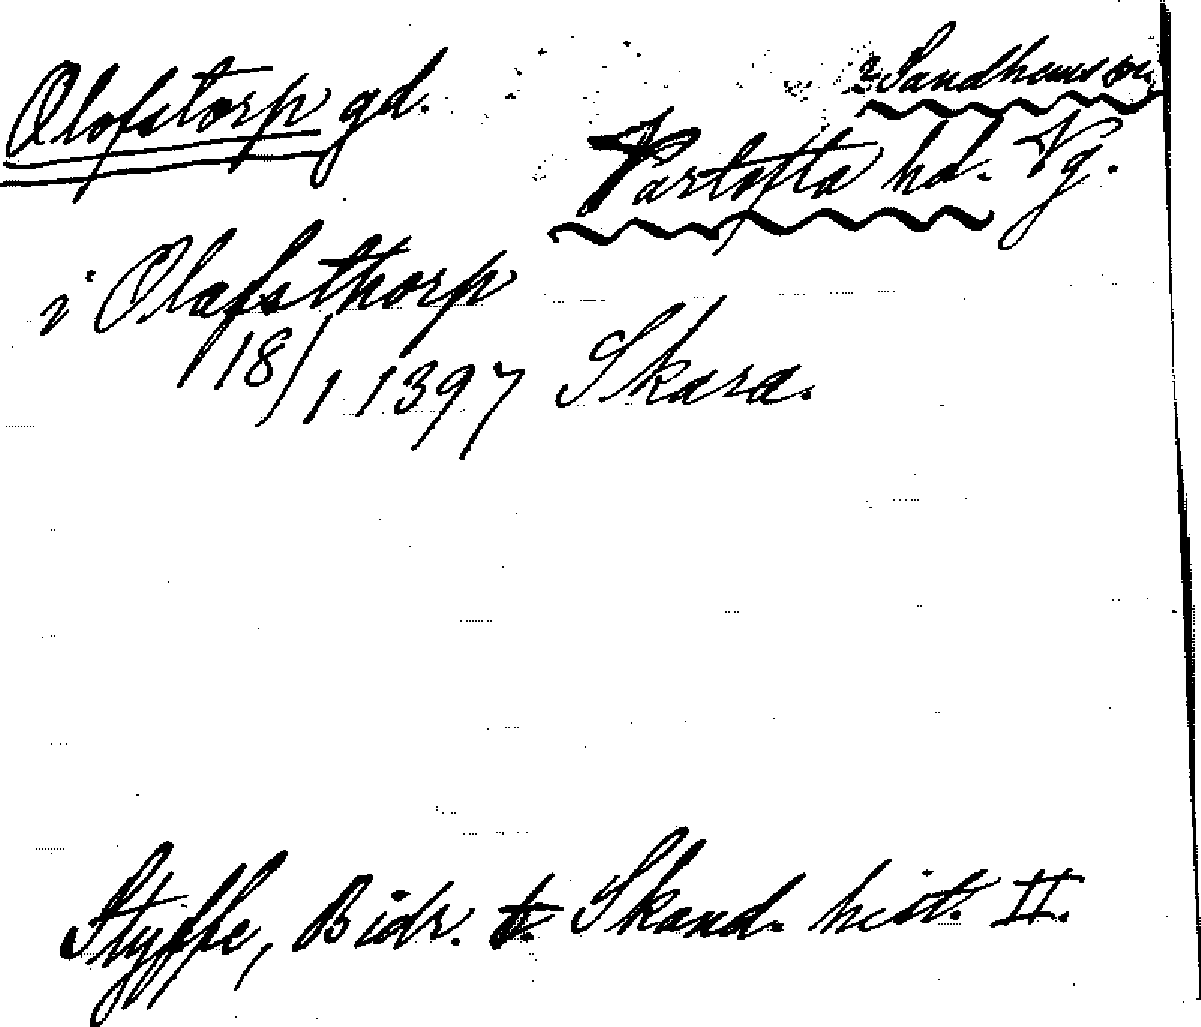 Olofstorp gd.
Sandhems sn
Vartofta hd. Vg.
i Olafsthorp
18/1 1397 Skara.
Styffe, Bidr. t. Skand. hist. II.